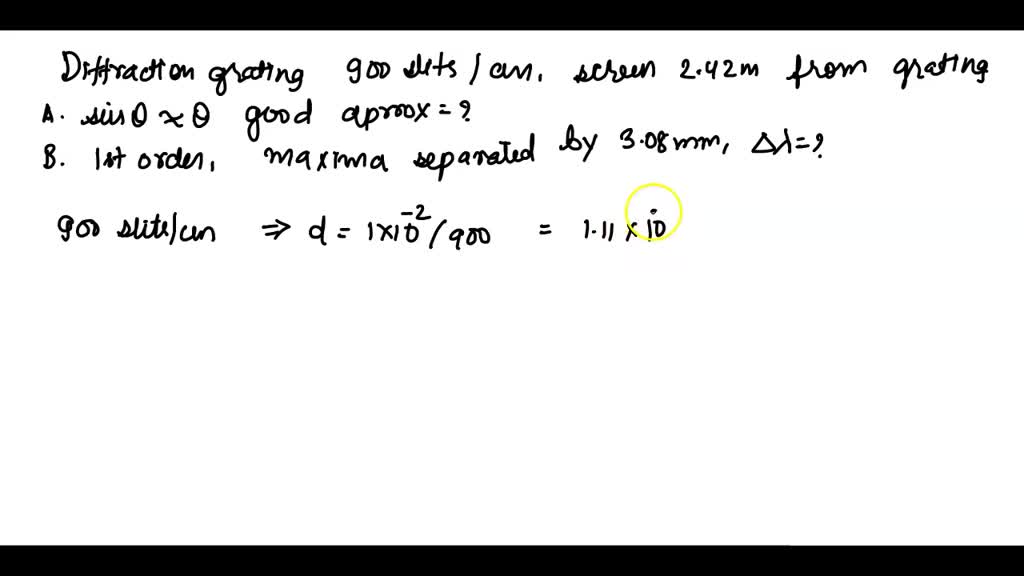 Diffraction grating 900 slits / cm. screen 2.42m from grating
A. sinθ ≈ θ good aproox = ?
B. 1st order, maxima separated by 3.08mm, Δλ = ?
900 slits/cm ⇒ d = 1×10⁻²/900 = 1.11 × 10